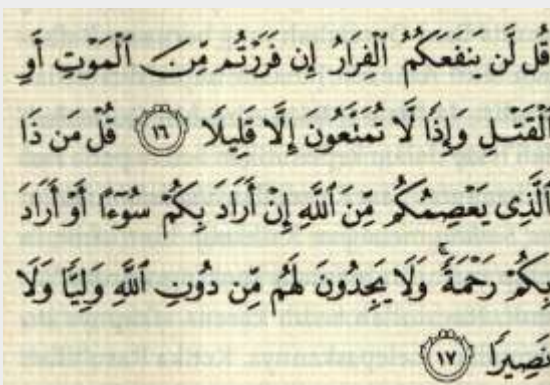 قُل لَّن يَنفَعَكُمُ ٱلْفِرَارُ إِن فَرَرْتُم مِّنَ ٱلْمَوْتِ أَوِ
ٱلْقَتْلِ وَإِذًا لَّا تُمَتَّعُونَ إِلَّا قَلِيلًا ١٦ قُلْ مَن ذَا
ٱلَّذِى يَعْصِمُكُم مِّنَ ٱللَّهِ إِنْ أَرَادَ بِكُمْ سُوٓءًا أَوْ أَرَادَ
بِكُمْ رَحْمَةً ۚ وَلَا يَجِدُونَ لَهُم مِّن دُونِ ٱللَّهِ وَلِيًّا وَلَا
نَصِيرًا ١٧